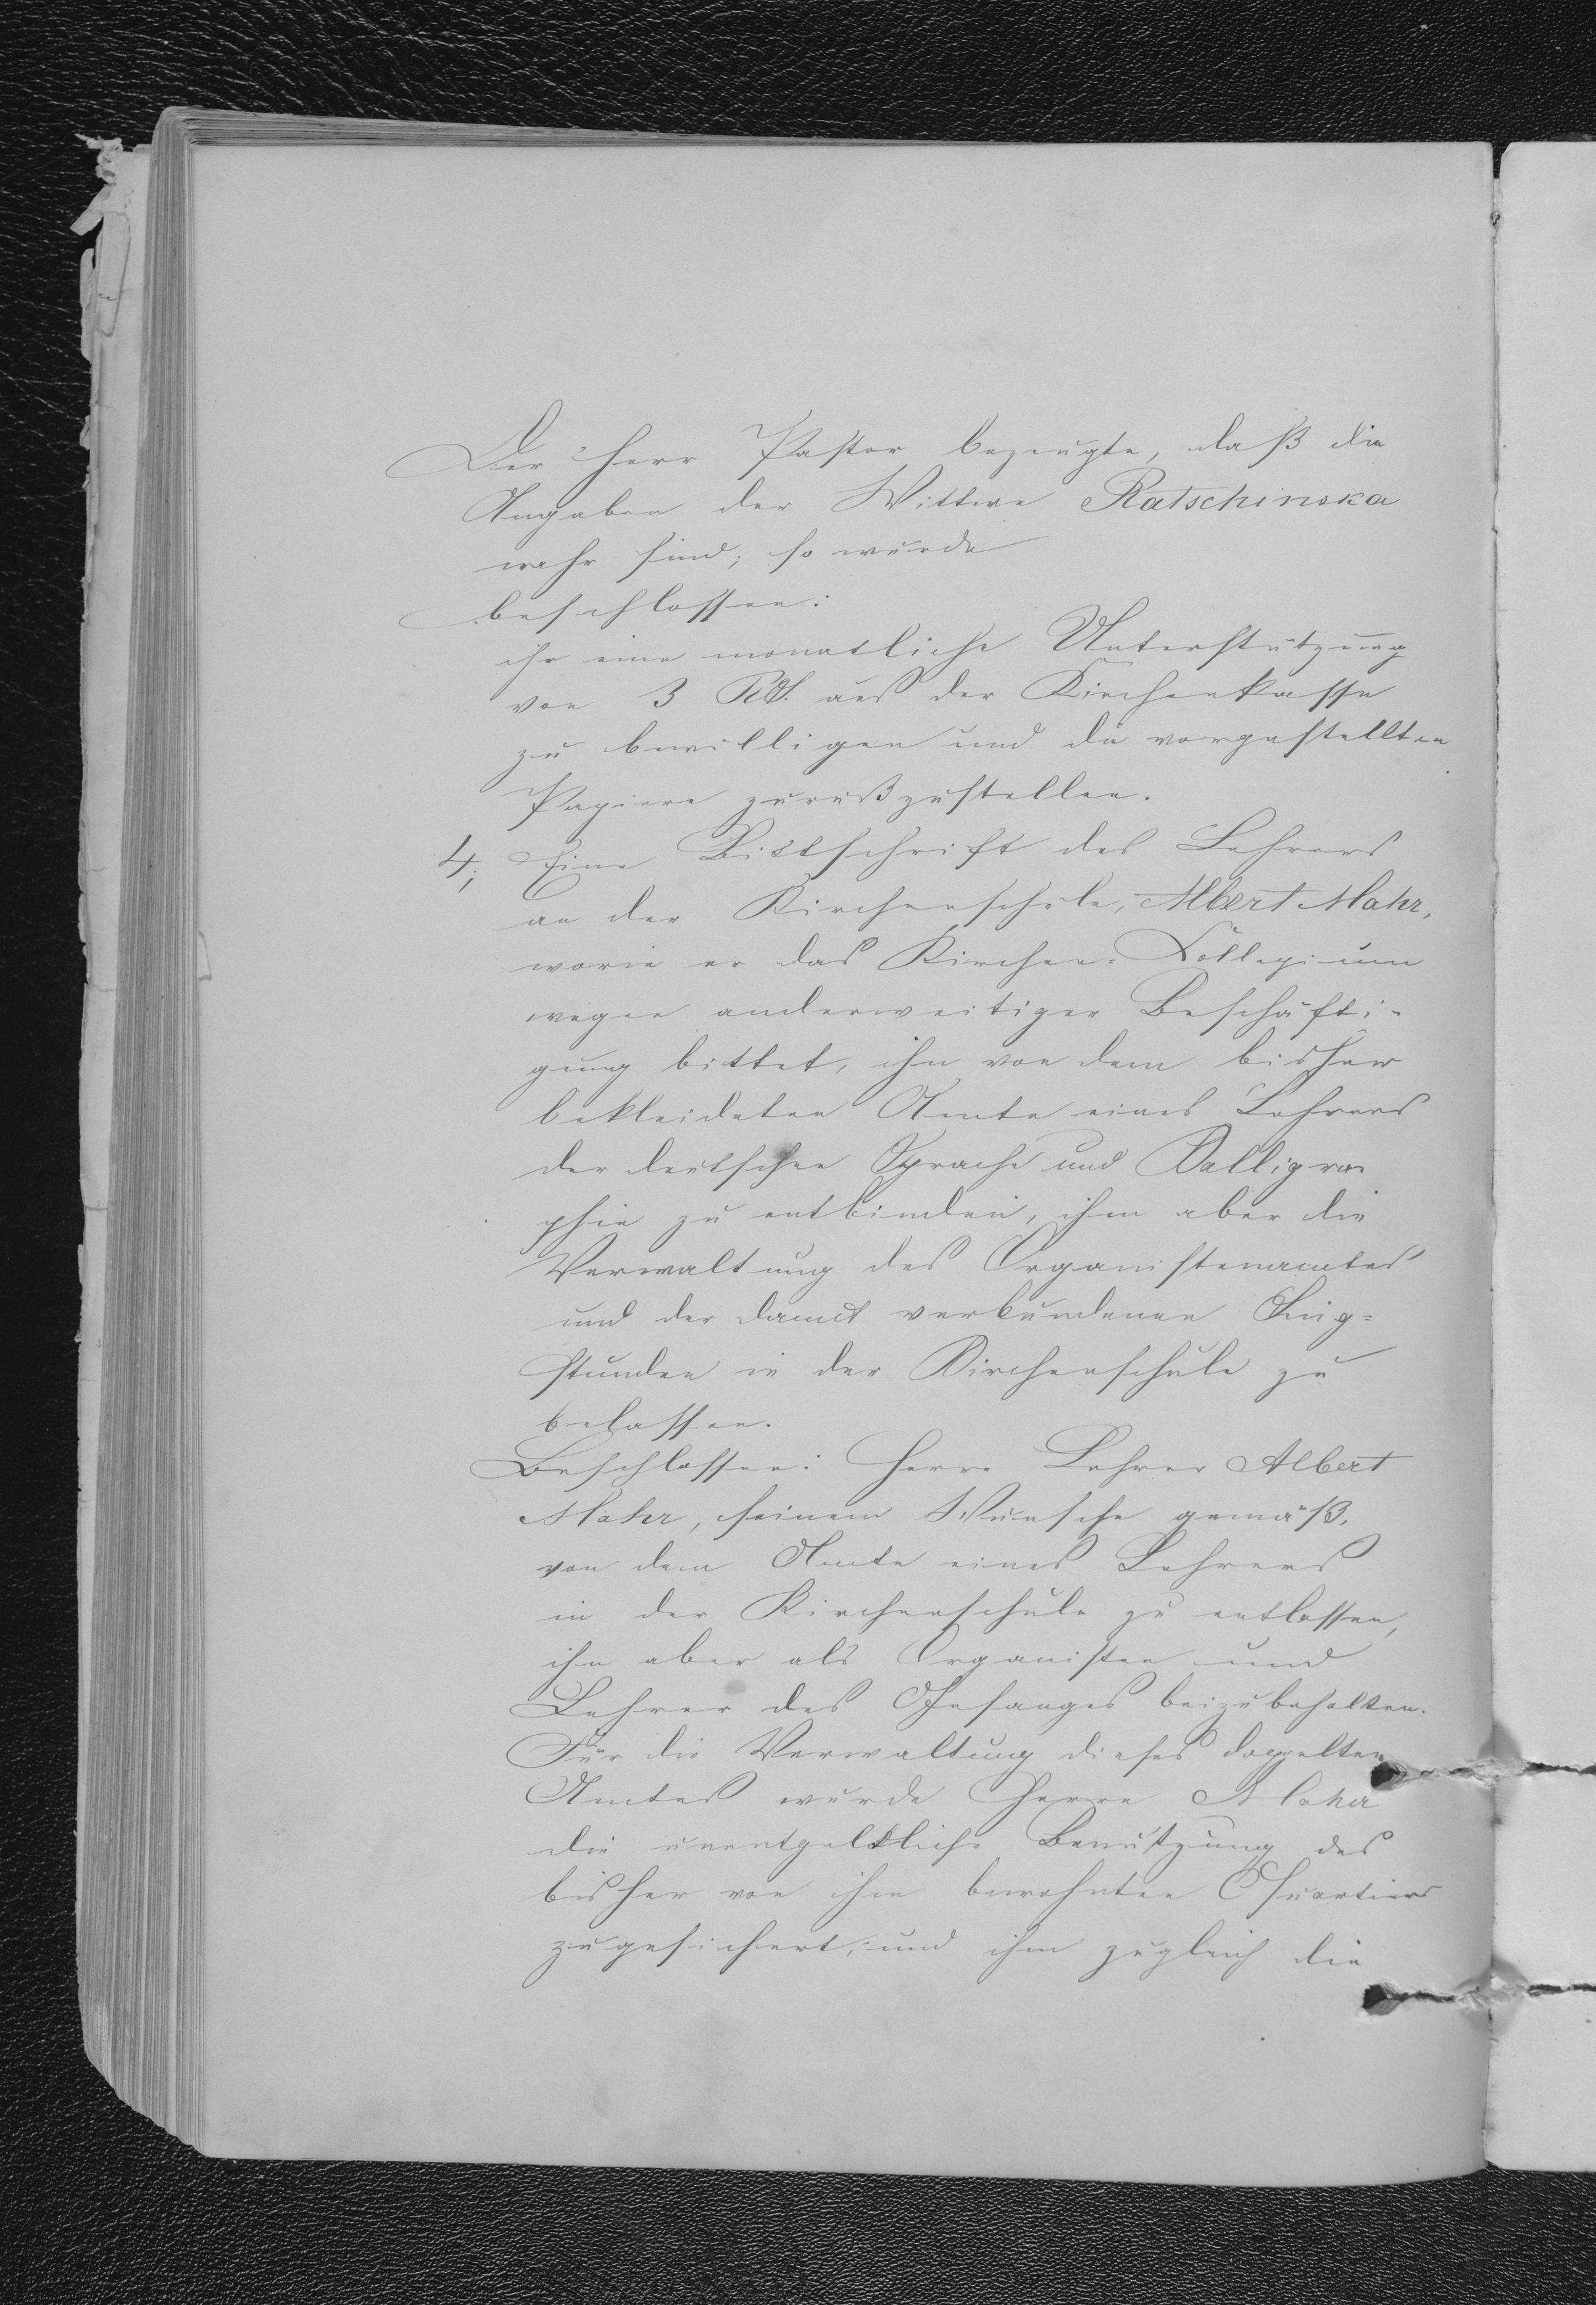 Der Herr Pastor bezeugte, daß die
Angaben der Wittwe Ratschinska
wahr sind; so wurde
beschlossen:
ihr eine monatliche Unterstützung
von 3 Rbl. aus der Kirchenkasse
zu bewilligen und die vorgestellten
Papiere zurückzustellen.
4, Eine Bittschrift des Lehrers
an der Kirchenschule, Albert Mahr,
worin er das Kirchen-Collegium
wegen anderweitiger Beschäfti-
gung bittet, ihn von dem bisher
bekleideten Amte eines Lehrers
der deutschen Sprache und Kalligra
phie zu entbinden, ihm aber die
Verwaltung des Organistenamtes
und der damit verbundenen Sing-
stunden in der Kirchenschule zu
belassen.
Beschlossen: Herrn Lehrer Albert
Mahr, seinem Wunsche gemäß,
von dem Amte eines Lehrers
in der Kirchenschule zu entlassen,
ihn aber als Organisten und
Lehrer des Gesanges beizubehalten.
Für die Verwaltung dieses doppelten
Amtes wurde Herrn Mahr
die unentgeltliche Benutzung des
bisher von ihm bewohnten Quartiers
zugesichert, und ihm zugleich die